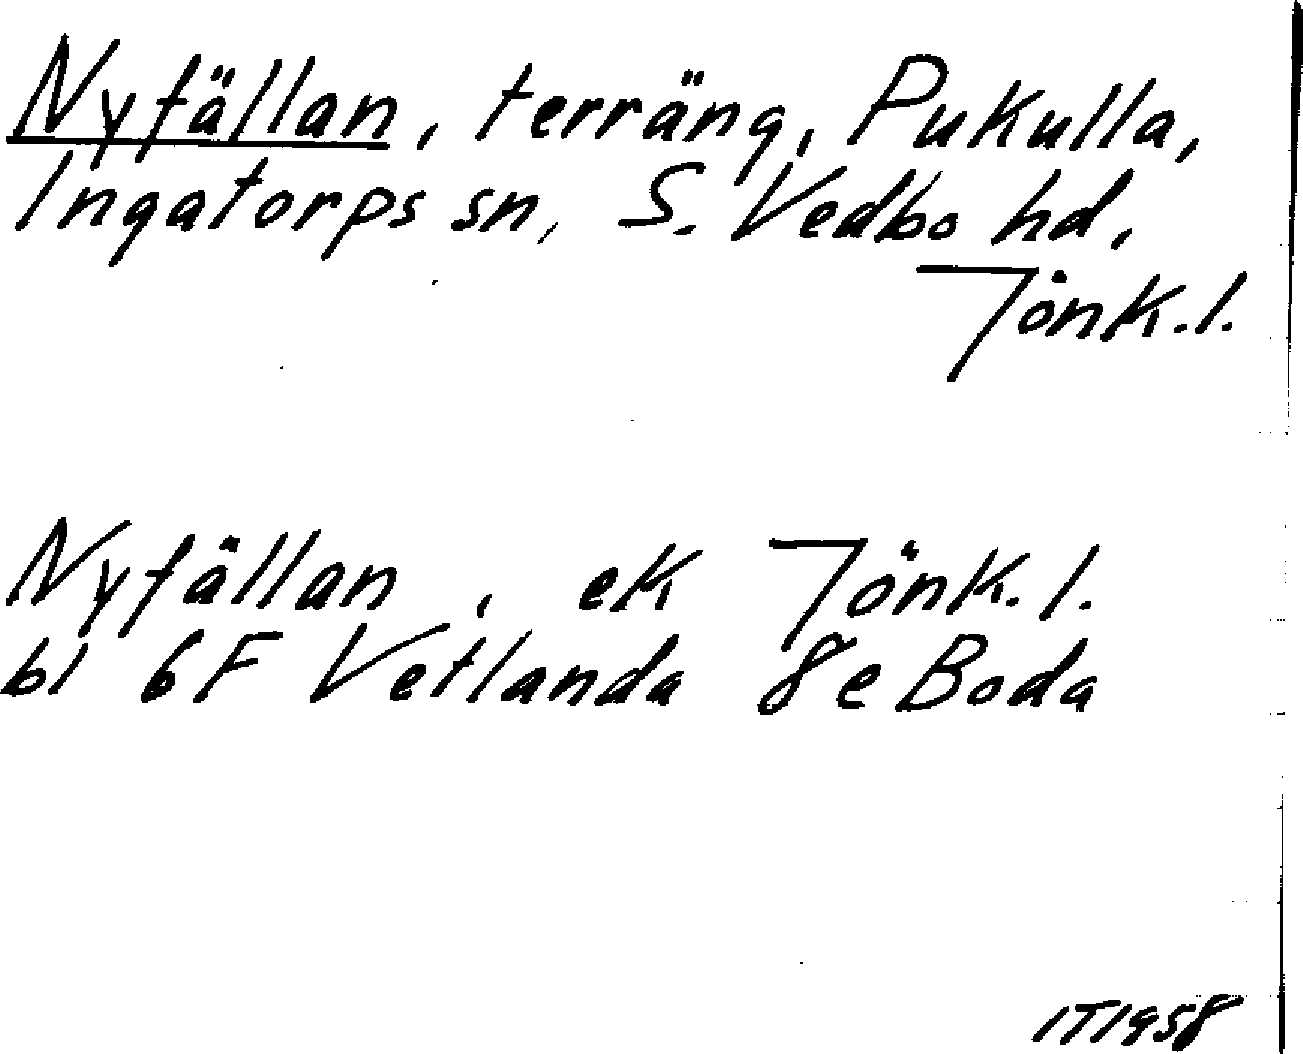 Nyfällan, terräng, Pukulla,
Ingatorps sn, S. Vedbo hd,
Jönk.l.
Nyfällan, ek Jönk.l.
bl 6F Vetlanda 8e Boda
IT1958